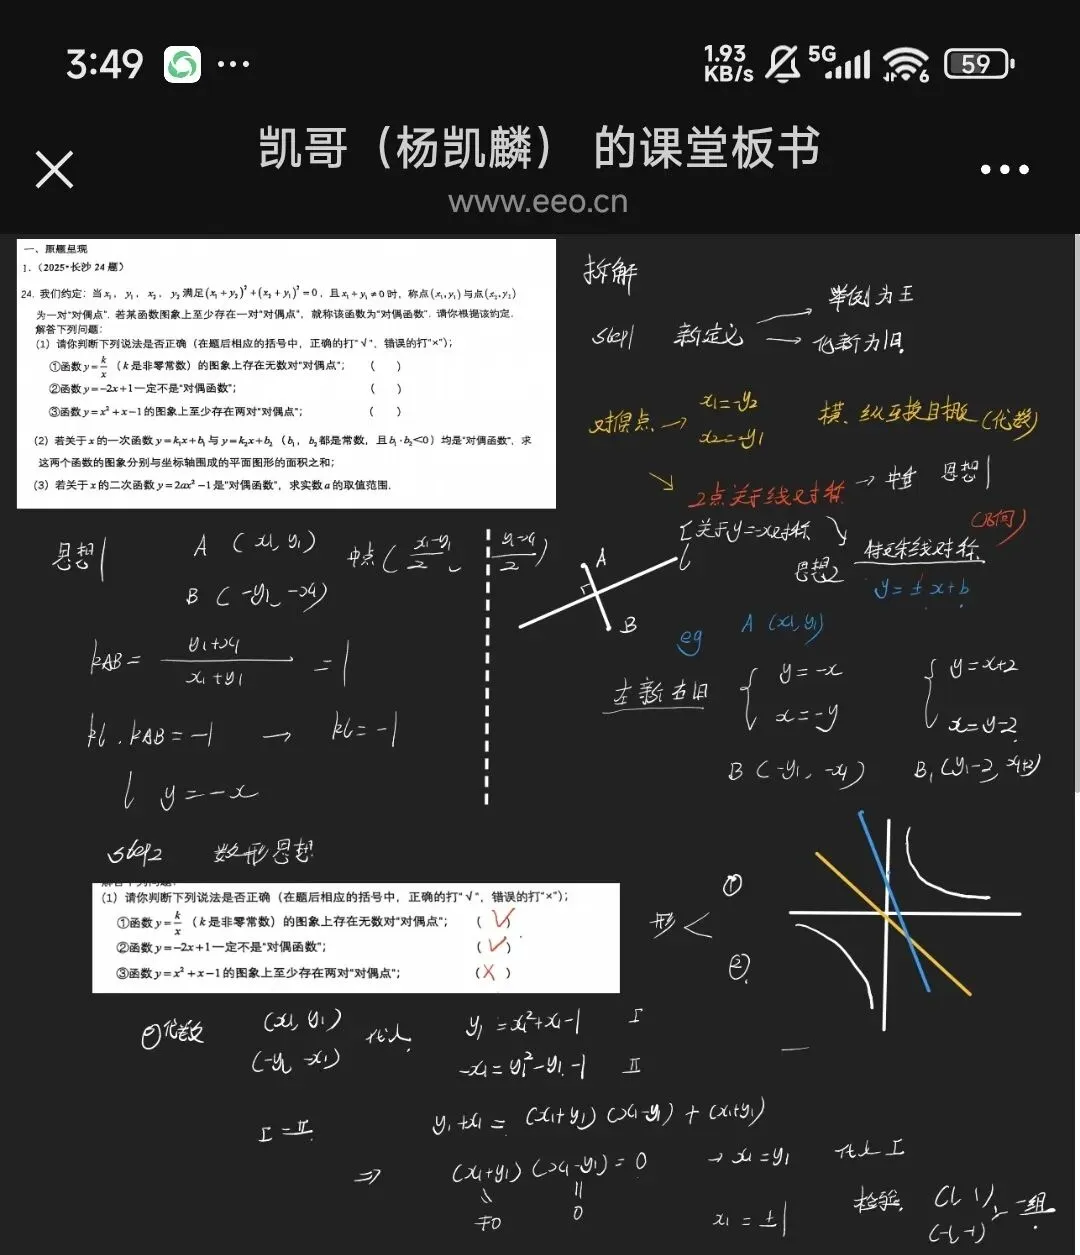 3:49
1.93 KB/s 5G 6 59
凯哥（杨凯麟） 的课堂板书
www.eeo.cn
一、原题呈现
1.（2025•长沙 24 题）
24. 我们约定：当 x₁，y₁，x₂，y₂ 满足 (x₁+y₂)²+(x₂+y₁)²=0，且 x₁+y₁≠0 时，称点 (x₁,y₁) 与点 (x₂,y₂)
为一对“对偶点”．若某函数图象上至少存在一对“对偶点”，就称该函数为“对偶函数”．请你根据该约定，
解答下列问题：
（1）请你判断下列说法是否正确（在题后相应的括号中，正确的打“√”，错误的打“×”）；
①函数 y=k/x（k 是非零常数）的图象上存在无数对“对偶点”； （ ）
②函数 y=-2x+1 一定不是“对偶函数”； （ ）
③函数 y=x²+x-1 的图象上至少存在两对“对偶点”； （ ）
（2）若关于 x 的一次函数 y=k₁x+b₁ 与 y=k₂x+b₂（b₁，b₂ 都是常数，且 b₁·b₂<0）均是“对偶函数”，求
这两个函数的图象分别与坐标轴围成的平面图形的面积之和；
（3）若关于 x 的二次函数 y=2ax²-1 是“对偶函数”，求实数 a 的取值范围．
拆解
Step1 新定义 → 举例为王
→ 化新为旧
对偶点 → x₁=-y₂
x₂=-y₁
横、纵互换目相反（代数）
2点关于线对称 → 中垂 思想1
（几何）
[关于y=-x对称
思想2 特殊线对称
y=±x+b
A
l
B
eg A (x₁,y₁)
左新右旧
{ y=-x
x=-y
{ y=x+2
x=y-2
B (-y₁, -x₁) B₁ (y₁-2, x₁+2)
思想1 A (x₁, y₁) 中点 ( (x₁-y₁)/2, (y₁-x₁)/2 )
B (-y₁, -x₁)
kAB = (y₁+x₁)/(x₁+y₁) = 1
kl·kAB=-1 → kl=-1
l y=-x
Step2 数形思想
解答下列问题：
（1）请你判断下列说法是否正确（在题后相应的括号中，正确的打“√”，错误的打“×”）；
①函数 y=k/x（k 是非零常数）的图象上存在无数对“对偶点”； （√）
②函数 y=-2x+1 一定不是“对偶函数”； （√）
③函数 y=x²+x-1 的图象上至少存在两对“对偶点”； （×）
形 < ①
②
①代数 (x₁, y₁) 代入 y₁=x₁²+x₁-1 Ⅰ
(-y₁, -x₁) -x₁=y₁²-y₁-1 Ⅱ
Ⅰ-Ⅱ y₁+x₁=(x₁+y₁)(x₁-y₁)+(x₁+y₁)
⇒ (x₁+y₁)(x₁-y₁)=0 → x₁=y₁ 代入Ⅰ
≠0 0 x₁=±1
检验 (1, 1)
(-1, -1) 一组